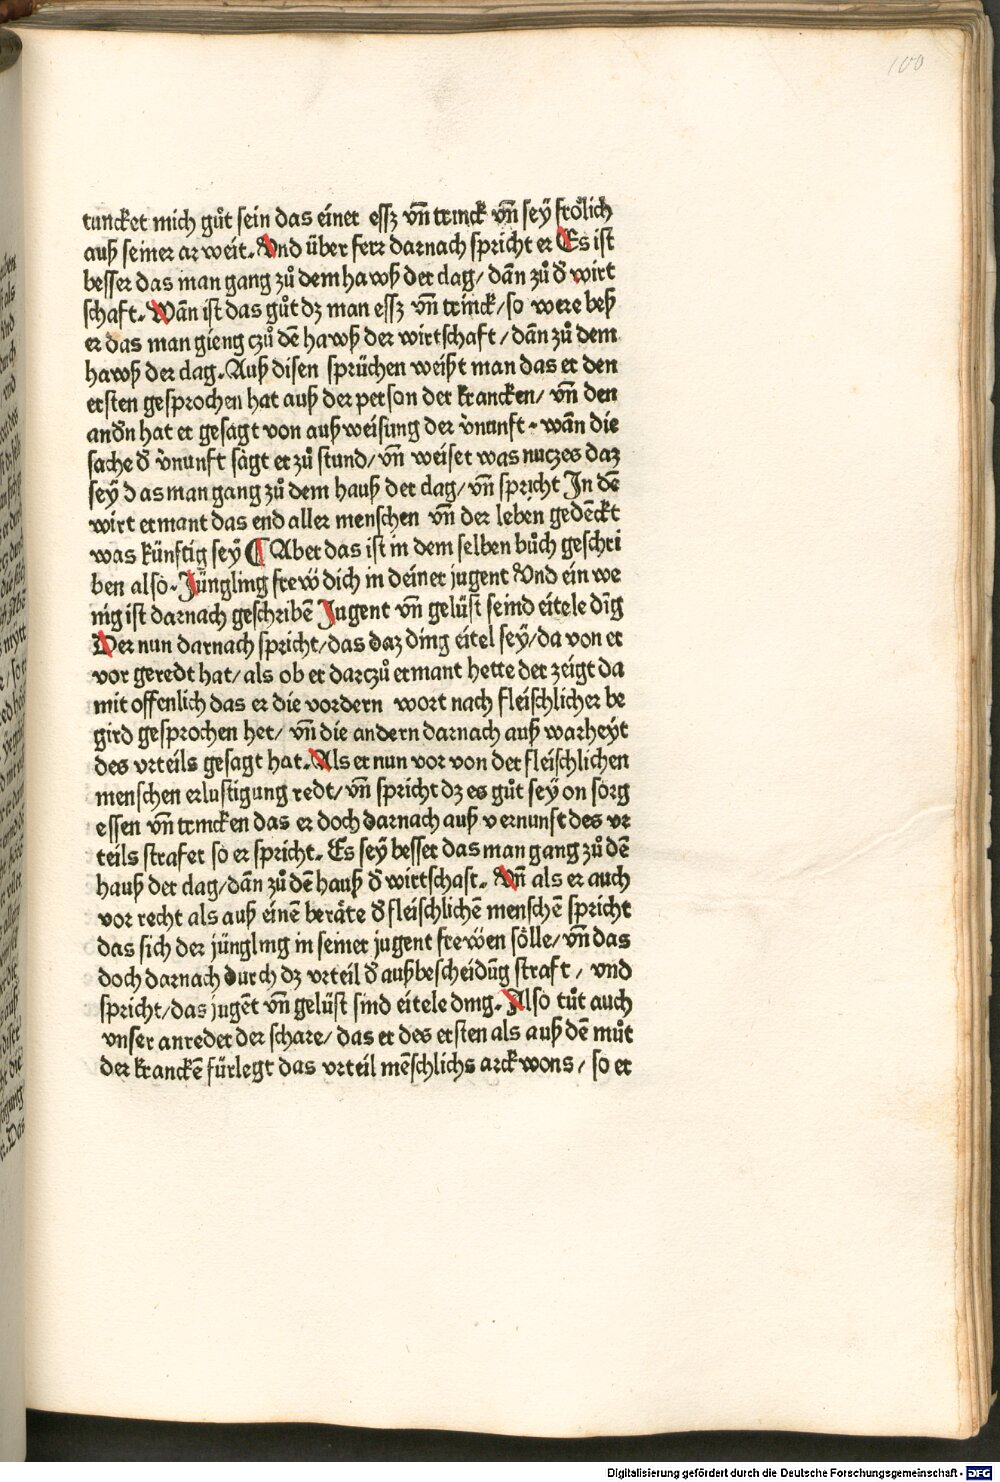 100
tuncket mich gůt sein das einer essz vn̄ trinck vn̄ sey̆ frölich
auß seiner arweit. Vnd über ferr darnach spricht er Es ist
besser das man gang zů dem hawß der clag/ dān zů d̕ wirt
schaft. Wān ist das gůt dz man essz vn̄ trinck/ so were beß
er das man gieng czů dē hawß der wirtschaft/ dān zů dem
hawß der clag. Auß disen sprüchen weißt man das er den
ersten gesprochen hat auß der person der krancken/ vn̄ den
andn̄ hat er gesagt von außweisung der v̕nunft. wān die
sache d̕ v̕nunft sagt er zů stund/ vn̄ weiset was nuczes daz
sey̆ das man gang zů dem hauß der clag/ vn̄ spricht In dē
wirt ermant das end aller menschen vn̄ der leben gedēckt
was künftig sey̆ ¶ Aber das ist in dem selben bůch geschri
ben also. Jüngling frew̆ dich in deiner jugent Vnd ein we
nig ist darnach geschribē Jugent vn̄ gelüst seind eitele dīg
Wer nun darnach spricht/ das daz ding eitel sey̆/ da von er
vor geredt hat/ als ob er darczů ermant hette der zeigt da
mit offenlich das er die vordern wort nach fleischlicher be
gird gesprochen het/ vn̄ die andern darnach auß warheyt
des vrteils gesagt hat. Als er nun vor von der fleischlichen
menschen erlustigung redt/ vn̄ spricht dz es gůt sey̆ on sorg
essen vn̄ trincken das er doch darnach auß vernunft des vr
teils strafet so er spricht. Es sey̆ besser das man gang zů dē
hauß der clag/ dān zů dē hauß d̕ wirtschaft. Vn̄ als er auch
vor recht als auß einē beräte d̕ fleischlichē menschē spricht
das sich der jüngling in seiner jugent frew̆en sölle/ vn̄ das
doch darnach durch dz vrteil d̕ außbescheidūg straft/ vnd
spricht/ das jugēt vn̄ gelüst sind eitele ding. Also tůt auch
vnser anreder der schare/ das er des ersten als auß dē můt
der kranckē fürlegt das vrteil mēschlichs arckwons/ so er
Digitalisierung gefördert durch die Deutsche Forschungsgemeinschaft - DFG